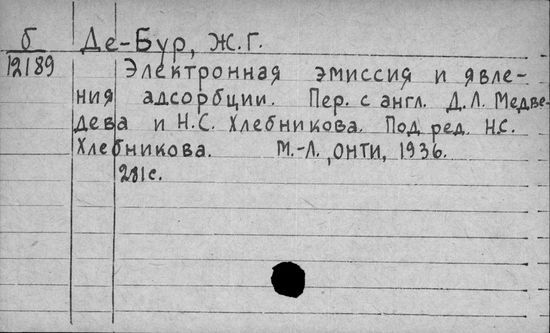 б Де-Бур, Ж.Г.
12189 Электронная эмиссия и явле-
ния адсорбции. Пер. с англ. Д.Л. Медве-
дева и Н.С. Хлебникова. Под ред. Н.С.
Хлебникова. М.-Л., ОНТИ, 1936.
281с.